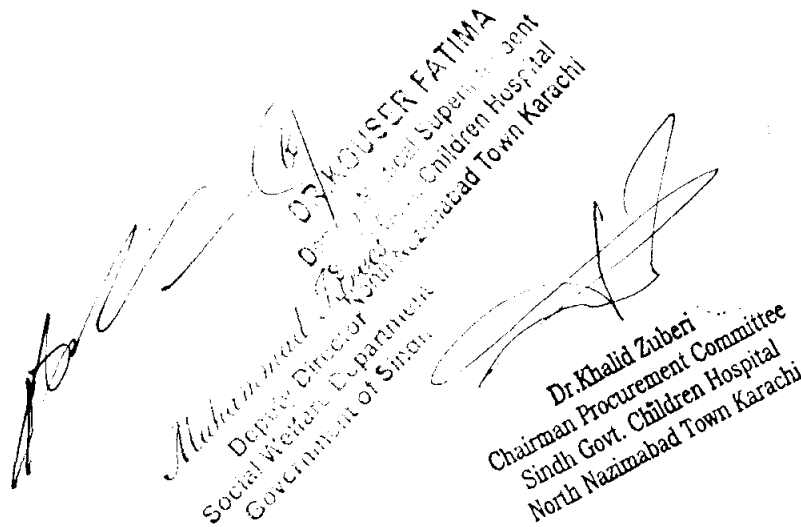 DR KOUSER FATIMA
Children Hospital
Town Karachi
Muhammad
Deputy Director
Social Welfare Department
Government of Sindh
Dr.Khalid Zuberi
Chairman Procurement Committee
Sindh Govt. Children Hospital
North Nazimabad Town Karachi